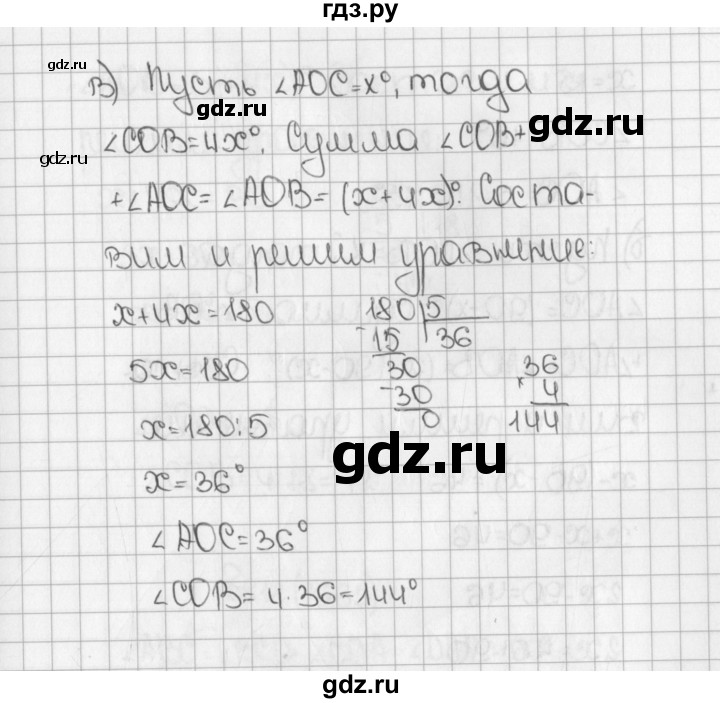 гдз.ру
в) Пусть ∠AOC=x°, тогда
∠COB=4x°. Сумма ∠COB+
+∠AOC=∠AOB=(x+4x)°. Соста-
вим и решим уравнение:
x+4x=180
5x=180
x=180:5
x=36°
∠AOC=36°
∠COB=4·36=144°
180|5
-15 36
30
-30
0
36
×4
144
gdz.ru
gdz.ru
gdz.ru
gdz.ru
gdz.ru
gdz.ru